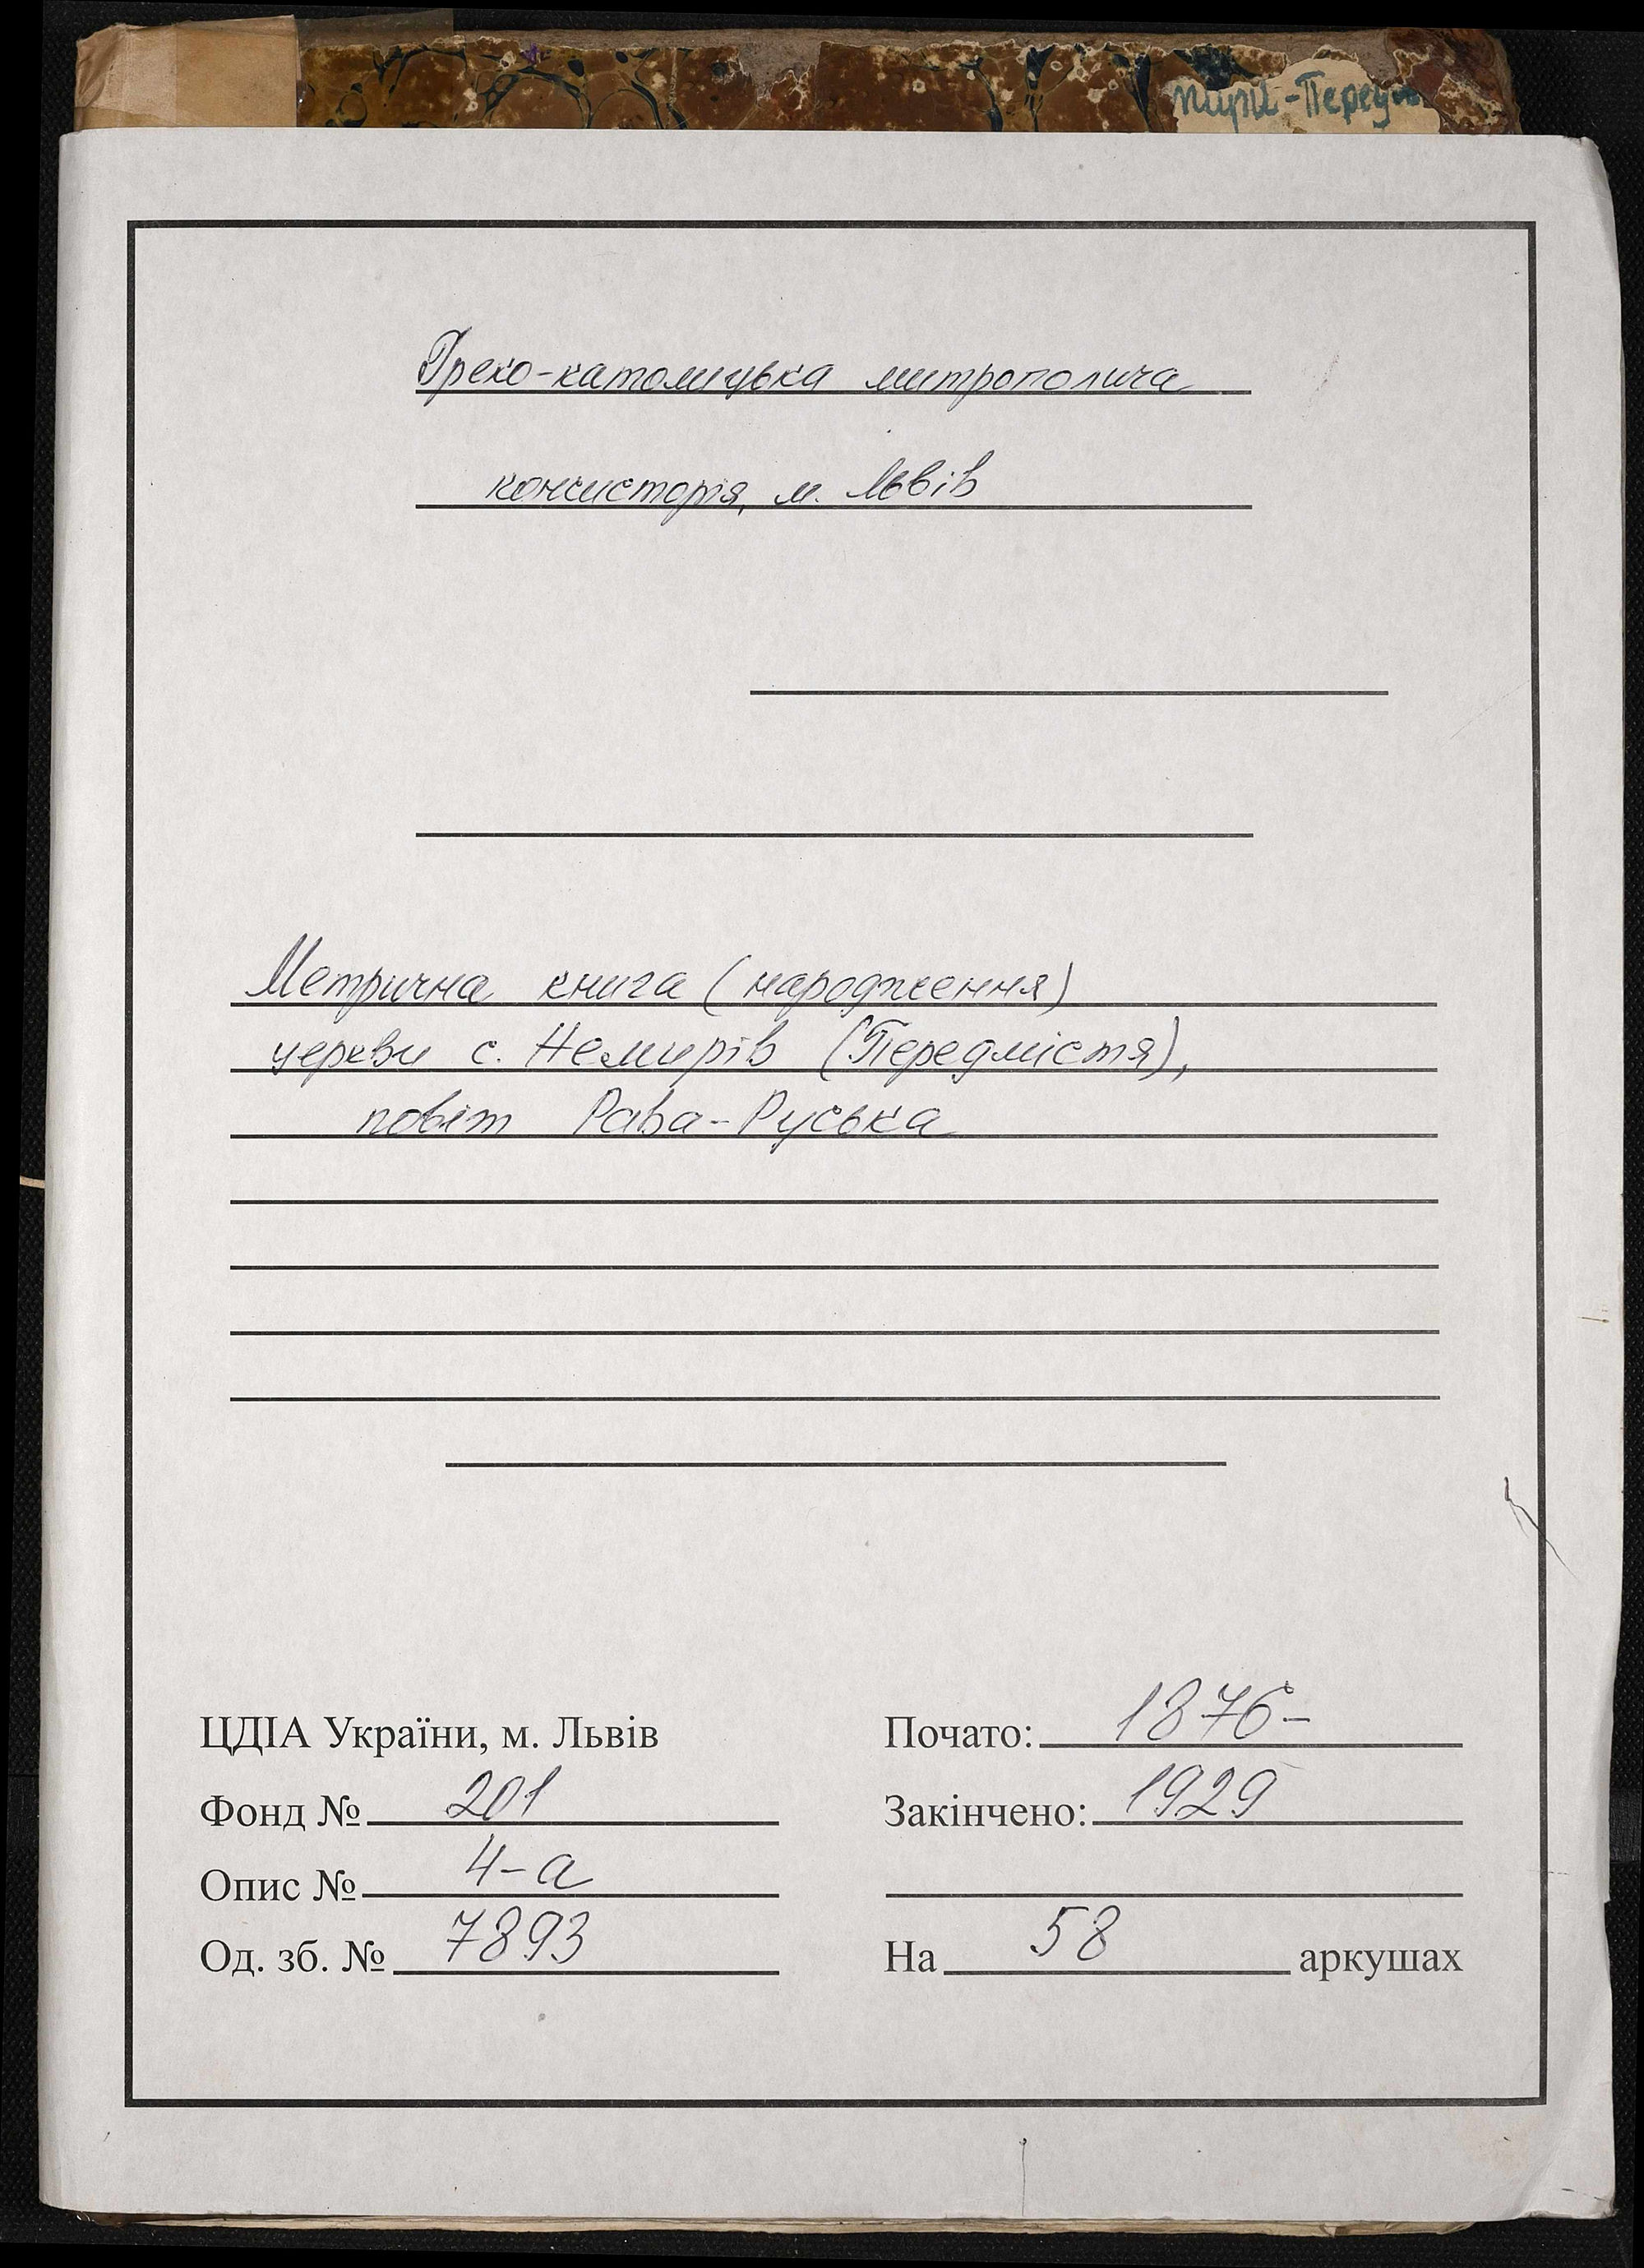 Греко-католицька митрополича
консисторія, м. Львів
Метрична книга (народження)
церкви с. Немирів (Передмістя),
повіт Рава-Руська
ЦДІА України, м. Львів
Фонд № 201
Опис № 4-а
Од. зб. № 7893
Почато: 1876-
Закінчено: 1929
На 58 аркушах